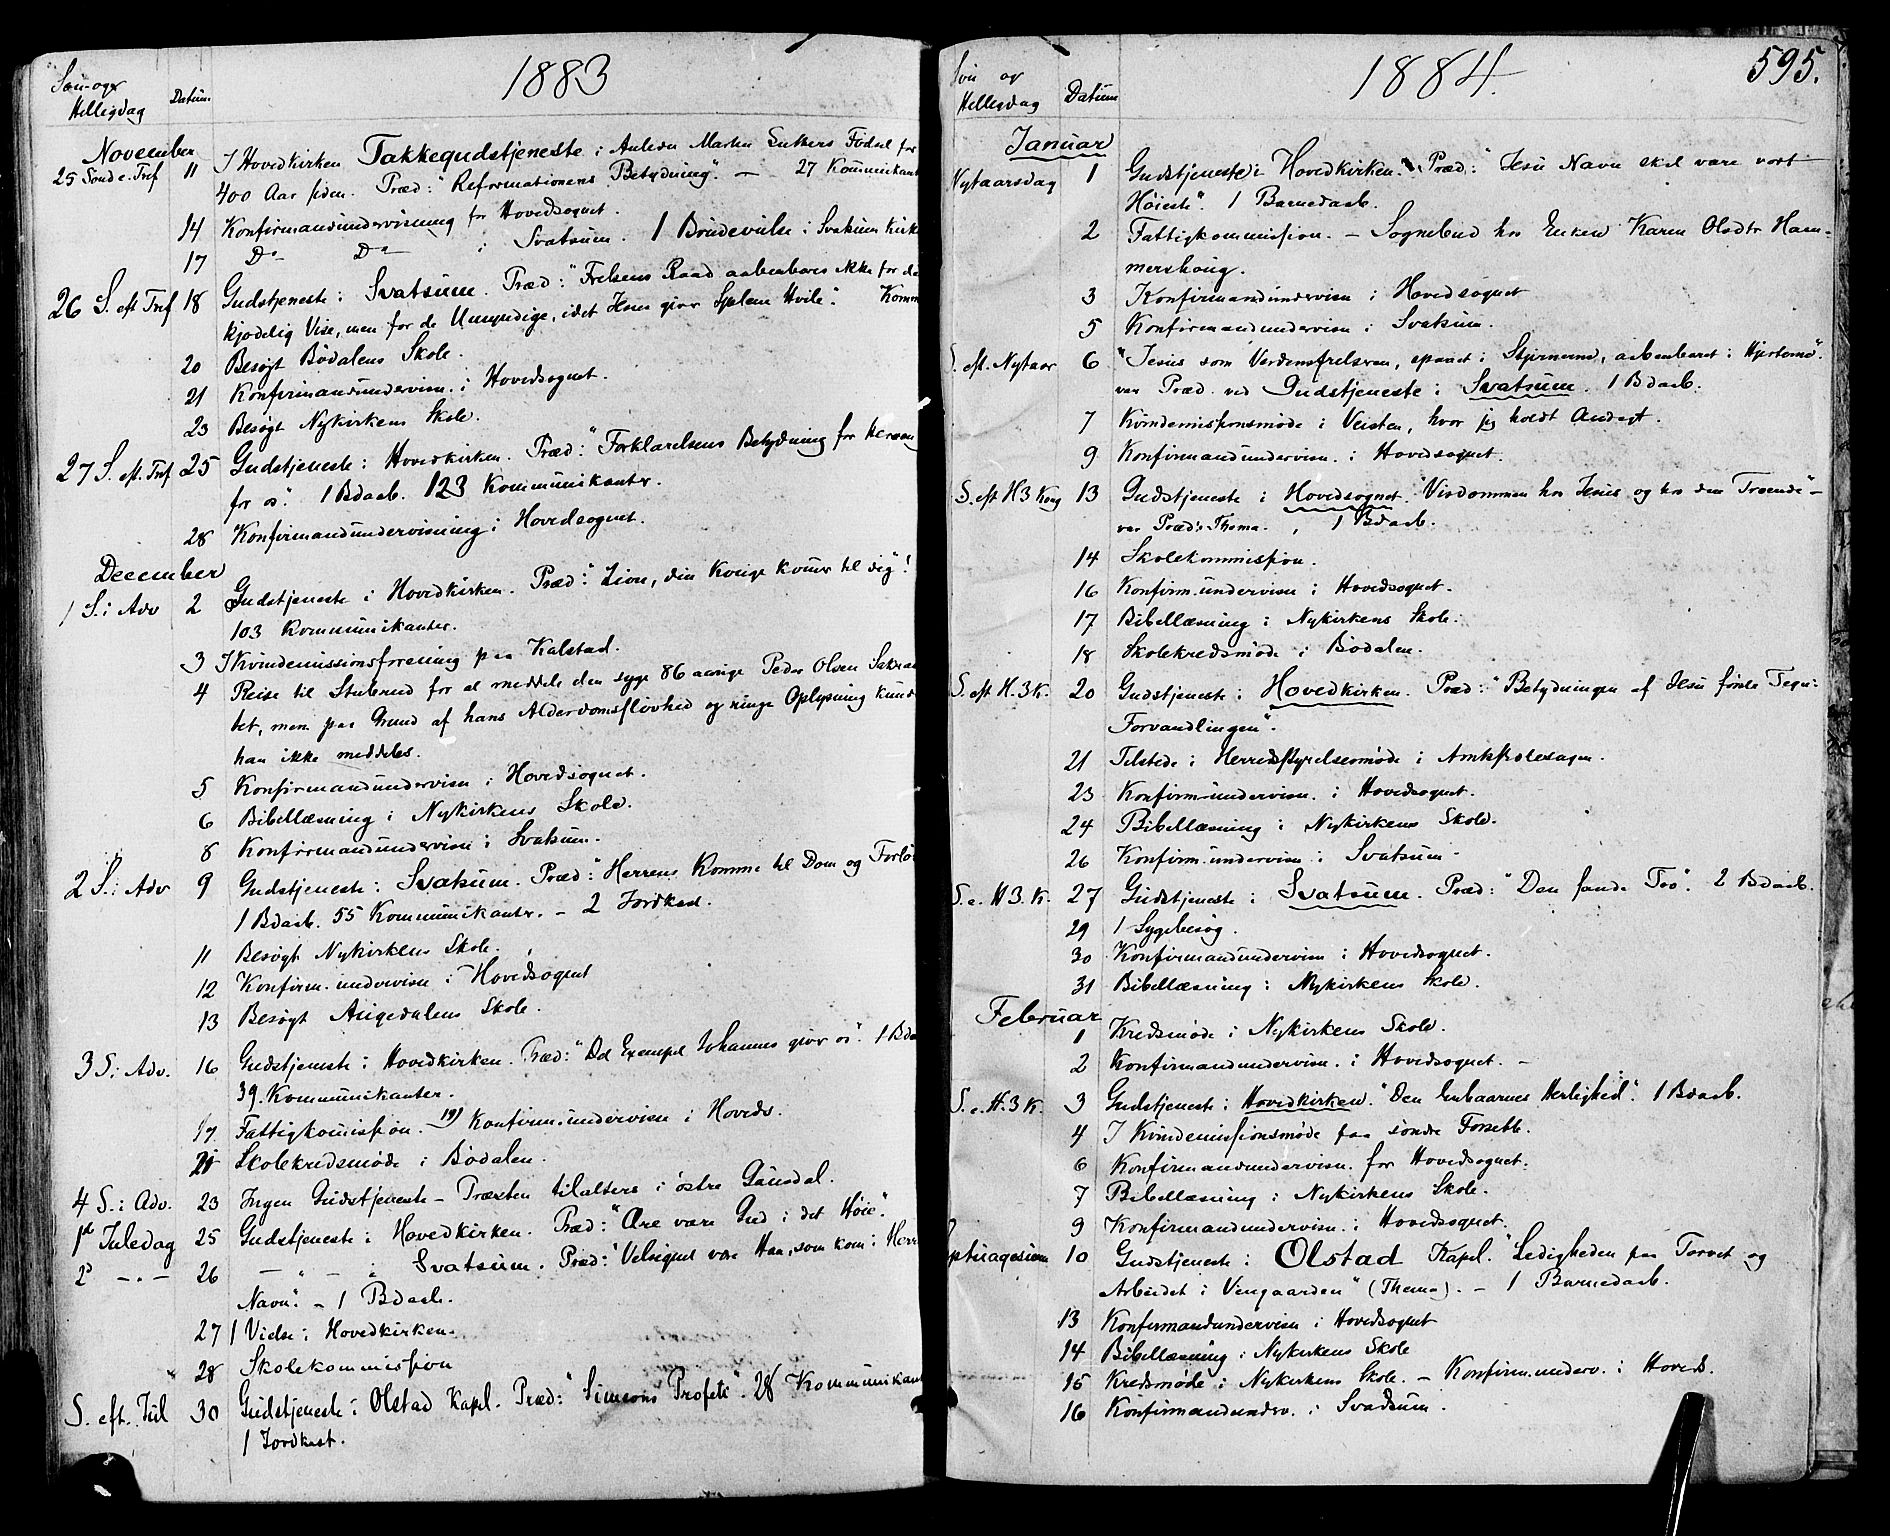 1883
Søn- og
Helligdag
Datum
November
25 Sond e. Tref 11 I Hovedkirken Takkegudstjeneste i Anledn Martin Luthers Fødsel for
400 Aar siden. Præd: "Reformationens Betydning". — 27 Kommunikant
14 Konfirmandundervisning for Hovedsognet.
17 Do Do i Svatsum. 1 Brudevielse i Svatsum Kirk
26 S. eft Tref 18 Gudstjeneste i Svatsum. Præd: "Frelsens Raad aabenbares ikke for de
kjødelig Vise, men for de Umyndige, idet Jesus giver Sjelene Hvile". Komm
20 Besøgt Bødalens Skole.
21 Konfirmandundervisn. i Hovedsognet.
23 Besøgt Nykirkens Skole.
27 S. eft. Tref 25 Gudstjeneste i Hovedkirken. Præd: "Forklarelsens Betydning for Herren og
for os". 1 Bdaab. 123 Kommunikanter.
28 Konfirmandundervisning i Hovedsognet.
December
1 S. i Adv 2 Gudstjeneste i Hovedkirken. Præd: "Zion, din Konge kommer til dig"!
103 Kommunikanter.
3 I Kvindemissionsforening paa Kalstad.
4 Reise til Stubrud for at meddele den syge 86 aarige Peder Olsen Sakram
tet, men paa Grund af hans Alderdomssløvhed og ringe Oplysning kunde
han ikke meddeles.
5 Konfirmandundervisn i Hovedsognet.
6 Bibellæsning i Nykirkens Skole.
8 Konfirmandundervisn i Svatsum.
2 S. i Adv 9 Gudstjeneste i Svatsum. Præd: "Herrens Komme til Dom og Forløs
1 Bdaab. 55 Kommunikanter. – 2 Jordkast.
11 Besøgt Nykirkens Skole.
12 Konfirm. undervisn i Hovedsognet
13 Besøgt Augedalens Skole.
3 S. i Adv. 16 Gudstjeneste i Hovedkirken. Præd: "Det Exempel Johannes giver os". 1 Bdaa
39 Kommunikanter.
17 Fattigkommission. 19) Konfirm.undervisn i Hoveds.
21 Skolekredsmøde i Bødalen.
4 S. i Adv. 23 Ingen Gudstjeneste – Præsten tilalters i østre Gausdal.
1st Juledag 25 Gudstjeneste i Hovedkirken. Præd: "Ære være Gud i det Høie".
2 – " – 26 – " – i Svatsum. Præd: "Velsignet være Han, som kom i Herr
Navn". – 1 Bdaab.
27 1 Vielse i Hovedkirken.
28 Skolekommission
S. eft. Jul 30 Gudstjeneste i Olstad Kapl. Præd: "Simeons Profeti". 28 Kommunikant
1 Jordkast.
1884.
595.
Søn og
Helligdag
Datum
Januar
Nytaarsdag 1 Gudstjeneste i Hovedkirken. Præd: "Jesu Navn skal være vort
Høieste". 1 Barnedaab.
2 Fattigkommission. – Sognebud hos Enken Karen Olsdtr Ham-
mershoug.
3 Konfirmandundervisn i Hovedsognet
5 Konfirmandundervisn i Svatsum.
S. eft. Nytaar 6 "Jesus som Verdensfrelseren, spaaet i Stjernerne, aabenbaret i Hjerterne".
var Præd. ved Gudstjeneste i Svatsum. 1 Bdaab.
7 Kvindemissionsmøde i Veisten, hvor jeg holdt Andagt.
9 Konfirmandundervisn. i Hovedsognet.
S. eft H3 Kong 13 Gudstjeneste i Hovedsognet. "Visdommen hos Jesus og hos den Troende" –
var Præd's Thema. 1 Bdaab.
14 Skolekommission.
16 Konfirm.undervisn i Hovedsognet.
17 Bibellæsning i Nykirkens Skole.
18 Skolekredsmøde i Bødalen.
S. eft H. 3 K. 20 Gudstjeneste i Hovedkirken. Præd: "Betydningen af Jesu første Tegn:
Forvandlingen".
21 Tilstede i Herredsstyrelsesmøde i Amtsskolesagen.
23 Konfirm-undervisn. i Hovedsognet.
24 Bibellæsning i Nykirkens Skole.
26 Konfirm.undervisn i Svatsum.
S. e. H 3. K. 27 Gudstjeneste i Svatsum. Præd: "Den sande Tro". 2 Bdaab.
29 1 Sygebesøg.
30 Konfirmandundervisn i Hovedsognet.
31 Bibellæsning i Nykirkens Skole.
Februar
1 Kredsmøde i Nykirkens Skole.
2 Konfirmandundervisn. i Hovedsognet. –
S. e. H. 3 K. 3 Gudstjeneste i Hovedkirken. "Den Enbaarnes Herlighed". 1 Bdaab.
4 I Kvindemissionsmøde paa søndre Forseth.
6 Konfirmandundervisn. for Hovedsognet.
7 Bibellæsning i Nykirkens Skole.
9 Konfirmandundervisn. i Hovedsognet.
ptuagesima 10 Gudstjeneste i Olstad Kapel. "Ledigheden paa Torvet og
Arbeidet i Vingaarden" (Thema). – 1 Barnedaab.
13 Konfirmandundervisn i Hovedsognet
14 Bibellæsning i Nykirkens Skole
15 Kredsmøde i Nykirkens Skole. – Konfirm.underv. i Hoveds.
16 Konfirmandunderv. i Svadsum.